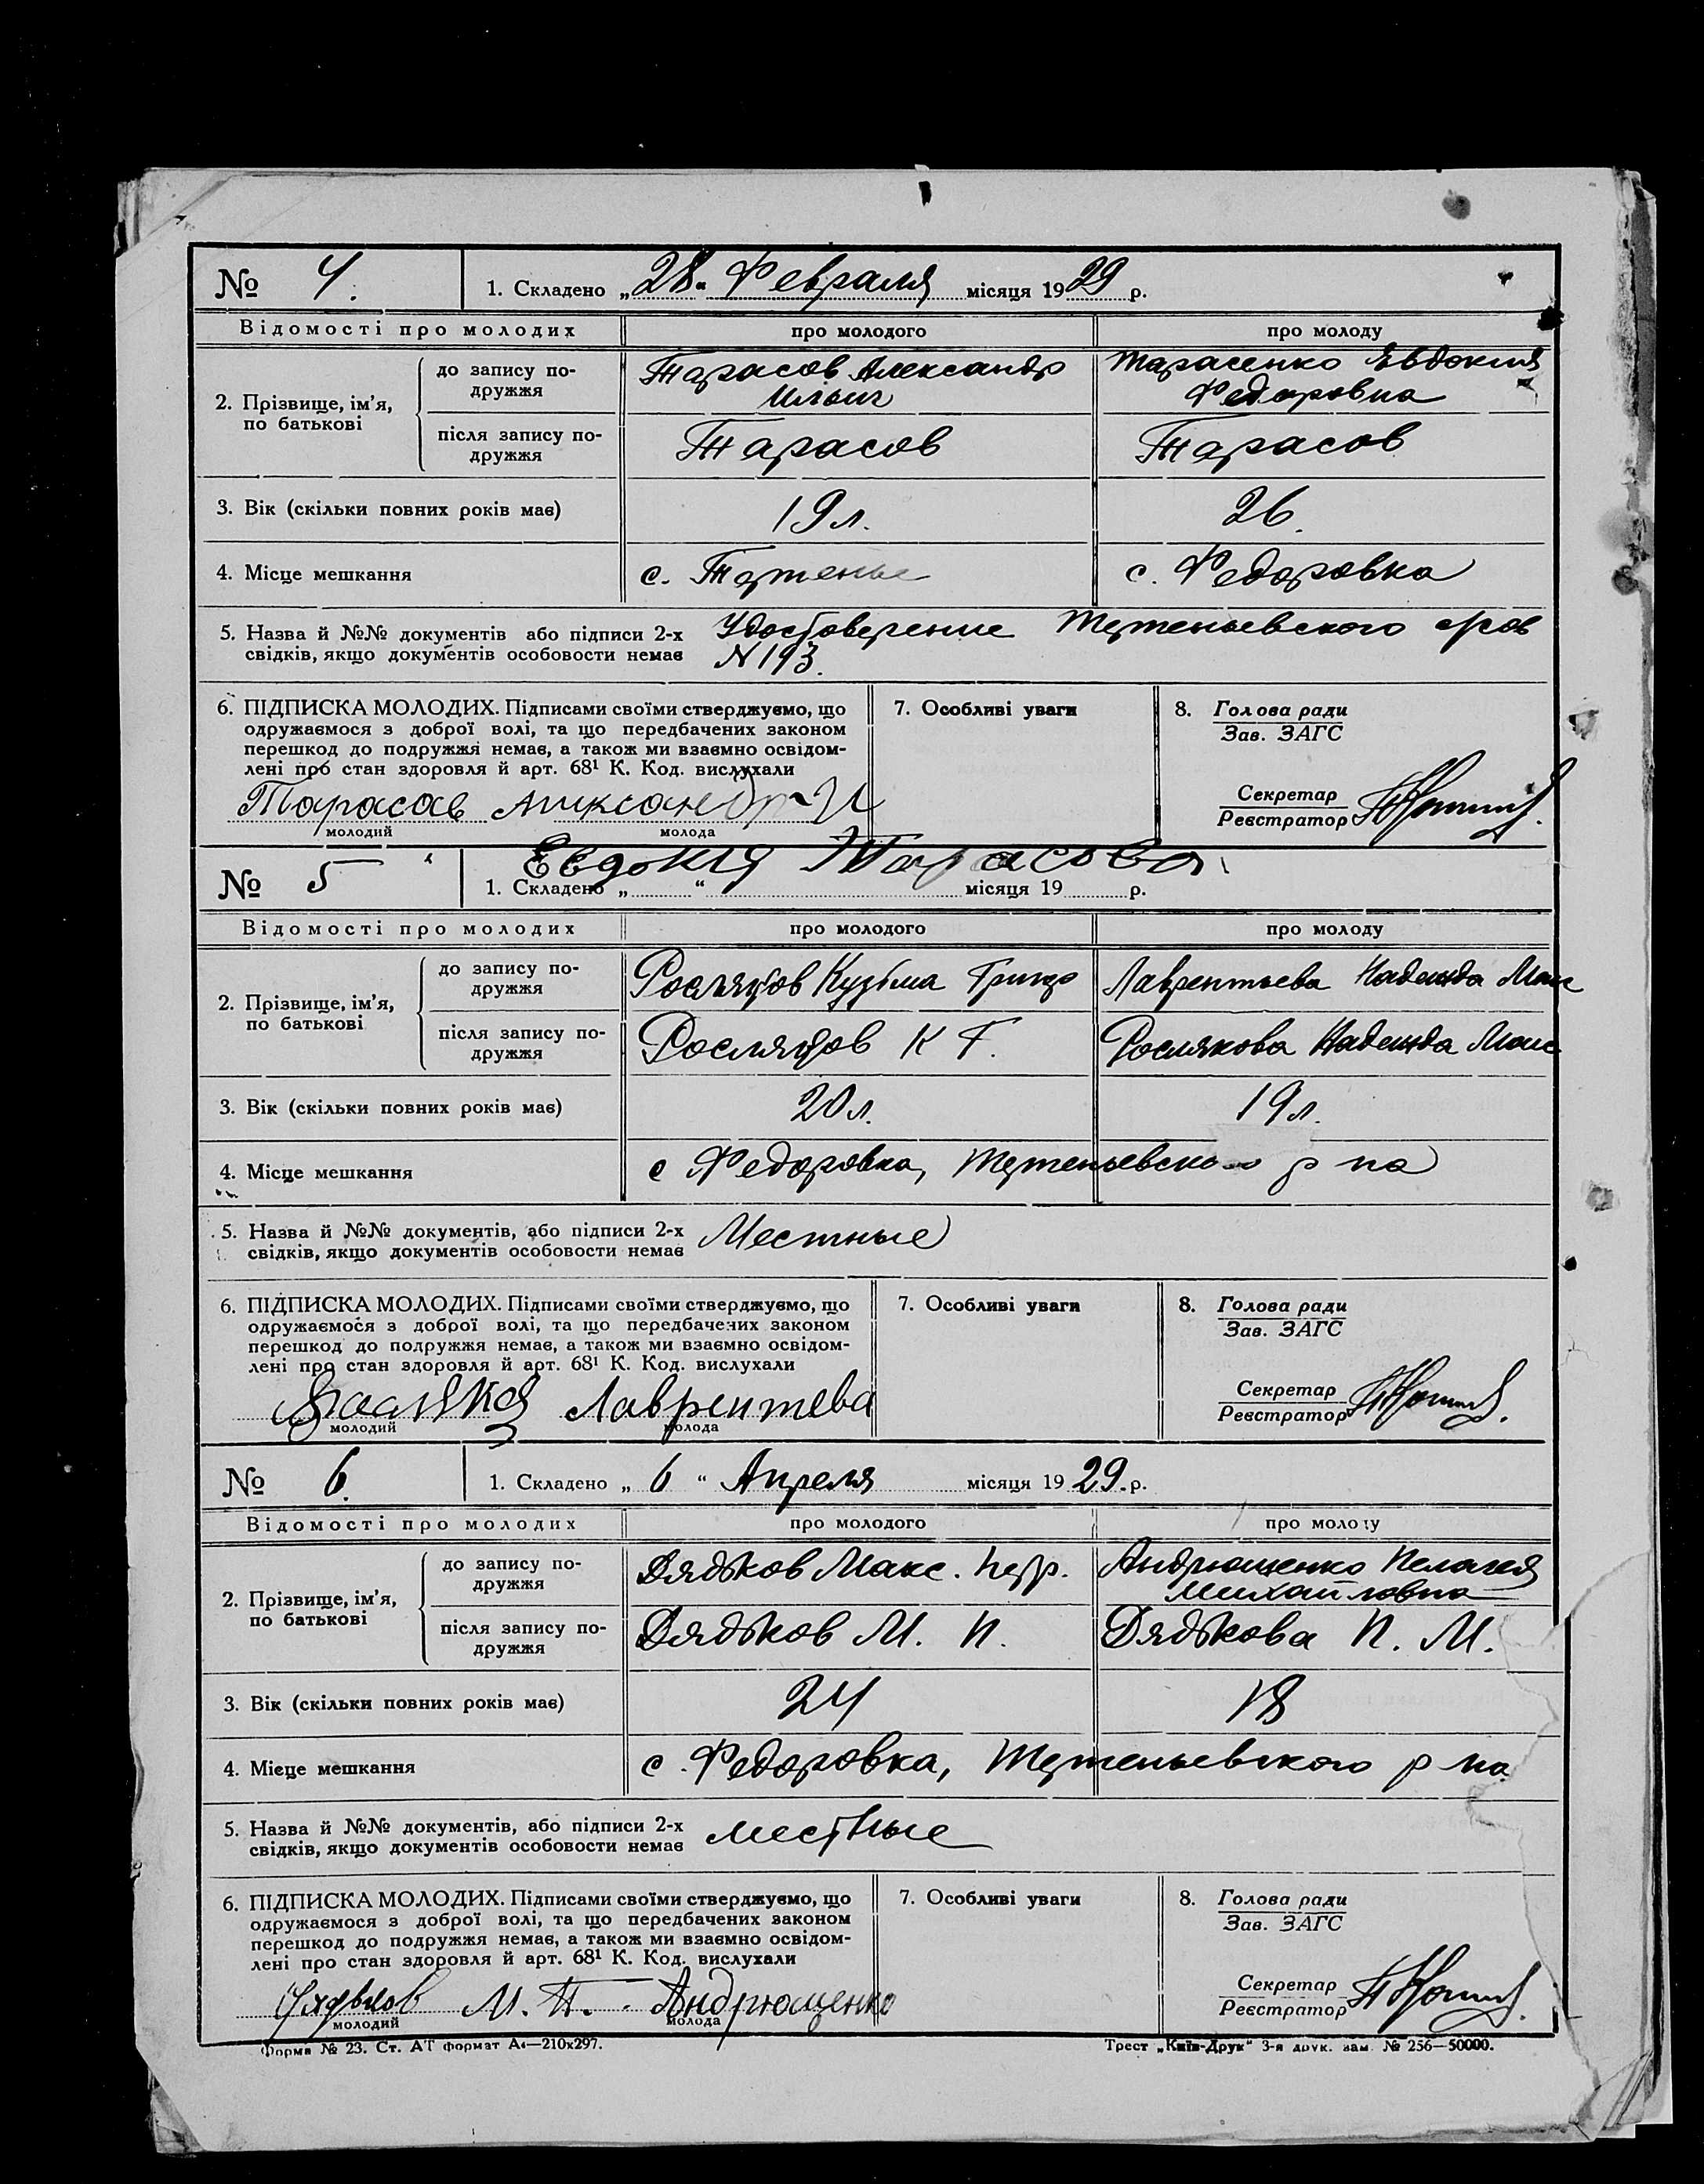 № 4. 1. Складено „28“ Февраля місяця 1929 р.
Відомості про молодих про молодого про молоду
2. Прізвище, ім'я, по батькові
до запису по-
дружжя
Тарасов Александр
Ильич
Тарасенко Евдокия
Федоровна
після запису по-
дружжя
Тарасов Тарасов
3. Вік (скільки повних років має) 19 л. 26.
4. Місце мешкання с. с. Федоровка
5. Назва й №№ документів або підписи 2-х
свідків, якщо документів особовости немає
Удостоверение
N 193.
6. ПІДПИСКА МОЛОДИХ. Підписами своїми стверджуємо, що
одружаємося з доброї волі, та що передбачених законом
перешкод до подружжя немає, а також ми взаємно освідом-
лені про стан здоровля й арт. 68¹ К. Код. вислухали
Тарасов
молодий молода
7. Особливі уваги
8. Голова ради
Зав. ЗАГС
Секретар
Реєстратор
Евдокия Тарасова.
№ 5 1. Складено „ “ місяця 19 р.
Відомості про молодих про молодого про молоду
2. Прізвище, ім'я, по батькові
до запису по-
дружжя
Росляков Кузьма Лаврентьева Надежда Макс
після запису по-
дружжя
Росляков К Г. Рослякова Надежда Макс
3. Вік (скільки повних років має) 20 л. 19 л.
4. Місце мешкання с Федоровка, р на
5. Назва й №№ документів, або підписи 2-х
свідків, якщо документів особовости немає
Местные
6. ПІДПИСКА МОЛОДИХ. Підписами своїми стверджуємо, що
одружаємося з доброї волі, та що передбачених законом
перешкод до подружжя немає, а також ми взаємно освідом-
лені про стан здоровля й арт. 68¹ К. Код. вислухали
Лаврентева
молодий молода
7. Особливі уваги
8. Голова ради
Зав. ЗАГС
Секретар
Реєстратор
№ 6. 1. Складено „ 6 “ Апреля місяця 1929. р.
Відомості про молодих про молодого про молоду
2. Прізвище, ім'я, по батькові
до запису по-
дружжя
Дядьков Макс. Андрющенко Пелагея
Михайловна
після запису по-
дружжя
Дядьков М. П. Дядькова П. М.
3. Вік (скільки повних років має) 24 18
4. Місце мешкання с. Федоровка, р на
5. Назва й №№ документів, або підписи 2-х
свідків, якщо документів особовости немає
местные
6. ПІДПИСКА МОЛОДИХ. Підписами своїми стверджуємо, що
одружаємося з доброї волі, та що передбачених законом
перешкод до подружжя немає, а також ми взаємно освідом-
лені про стан здоровля й арт. 68¹ К. Код. вислухали
М. П. Андрющенко
молодий молода
7. Особливі уваги
8. Голова ради
Зав. ЗАГС
Секретар
Реєстратор
Форма № 23. Ст. АТ формат А4—210х297.
Трест „Київ-Друк“ 3-я друк. зам. № 256—50000.